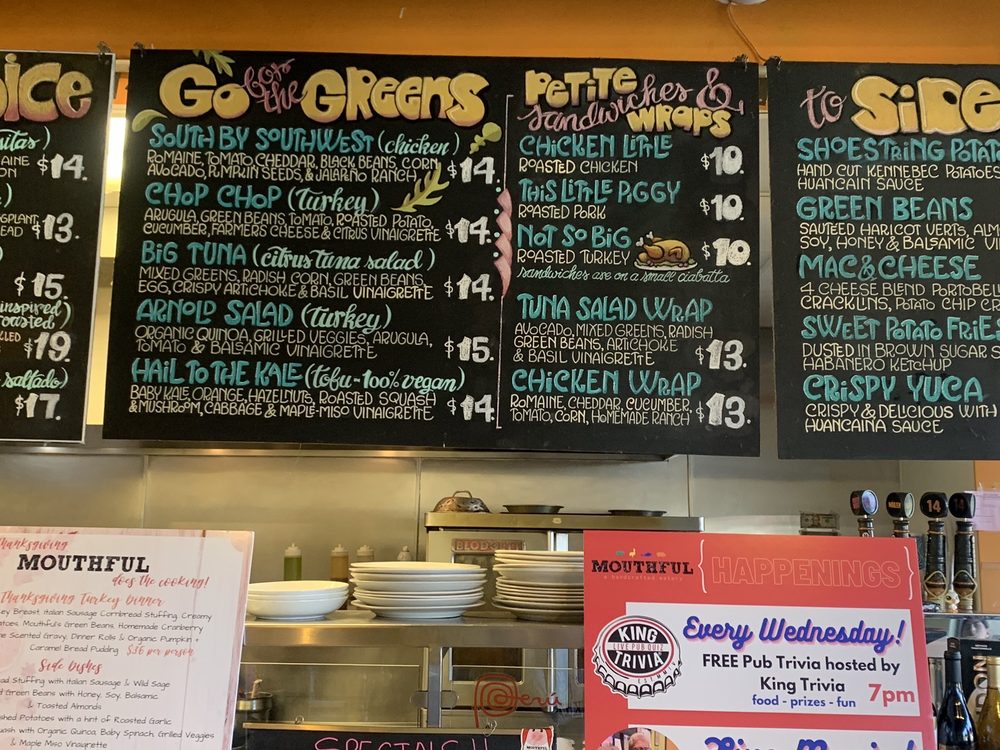 oice
sitas)
AINE
ON
$14.
GGPLANT,
EAD
$13.
$15.
inspired)
oasted)
$19.
saltado)
$17.
GO for the GREENS
SOUTH BY SOUTHWEST (chicken)
ROMAINE, TOMATO, CHEDDAR, BLACK BEANS, CORN,
AVOCADO, PUMPKIN SEEDS, & JALAPENO RANCH $14.
CHOP CHOP (Turkey)
ARUGULA, GREEN BEANS, TOMATO, ROASTED POTATO,
CUCUMBER, FARMERS CHEESE & CITRUS VINAIGRETTE $14.
BIG TUNA (citrus tuna salad)
MIXED GREENS, RADISH, CORN, GREEN BEANS,
EGG, CRISPY ARTICHOKE & BASIL VINAIGRETTE $14.
ARNOLD SALAD (turkey)
ORGANIC QUINOA, GRILLED VEGGIES, ARUGULA,
TOMATO & BALSAMIC VINAIGRETTE $15.
HAIL TO THE KALE (tofu-100% vegan)
BABY KALE, ORANGE, HAZELNUTS, ROASTED SQUASH
& MUSHROOM, CABBAGE & MAPLE-MISO VINAIGRETTE $14.
PETITE
sandwiches &
WRAPS
CHICKEN LITTLE
ROASTED CHICKEN $10.
THIS LITTLE PIGGY
ROASTED PORK $10.
NOT SO BIG
ROASTED TURKEY $10.
sandwiches are on a small ciabatta
TUNA SALAD WRAP
AVOCADO, MIXED GREENS, RADISH
GREEN BEANS, ARTICHOKE
& BASIL VINAIGRETTE $13.
CHICKEN WRAP
ROMAINE, CHEDDAR, CUCUMBER,
TOMATO, CORN, HOMEMADE RANCH $13.
to SIDE
SHOESTRING POTATO
HAND CUT KENNEBEC POTATOES
HUANCAIN SAUCE
GREEN BEANS
SAUTEED HARICOT VERTS, ALM
SOY, HONEY & BALSAMIC VI
MAC & CHEESE
4 CHEESE BLEND PORTOBELL
CRACKLINS, POTATO CHIP CR
SWEET POTATO FRIE
DUSTED IN BROWN SUGAR S
HABANERO KETCHUP
CRISPY YUCA
CRISPY & DELICIOUS WITH
HUANCAINA SAUCE
Thanksgiving
MOUTHFUL
does the cooking!
Thanksgiving Turkey Dinner
ey Breast, Italian Sausage Cornbread Stuffing, Creamy
atoes, Mouthful's Green Beans, Homemade Cranberry
e Scented Gravy, Dinner Rolls & Organic Pumpkin +
Caramel Bread Pudding $36 per person
Side Dishes
ad Stuffing with Italian Sausage & Wild Sage
d Green Beans with Honey, Soy, Balsamic
& Toasted Almonds
shed Potatoes with a hint of Roasted Garlic
uash with Organic Quinoa, Baby Spinach, Grilled Veggies
& Maple Miso Vinaigrette
BLODGETT
Perú
SPECIALS!!
MOUTHFUL
MOUTHFUL
a handcrafted eatery
HAPPENINGS
KING
LIVE PUB QUIZ
TRIVIA
Every Wednesday!
FREE Pub Trivia hosted by
King Trivia
food - prizes - fun
7pm
14